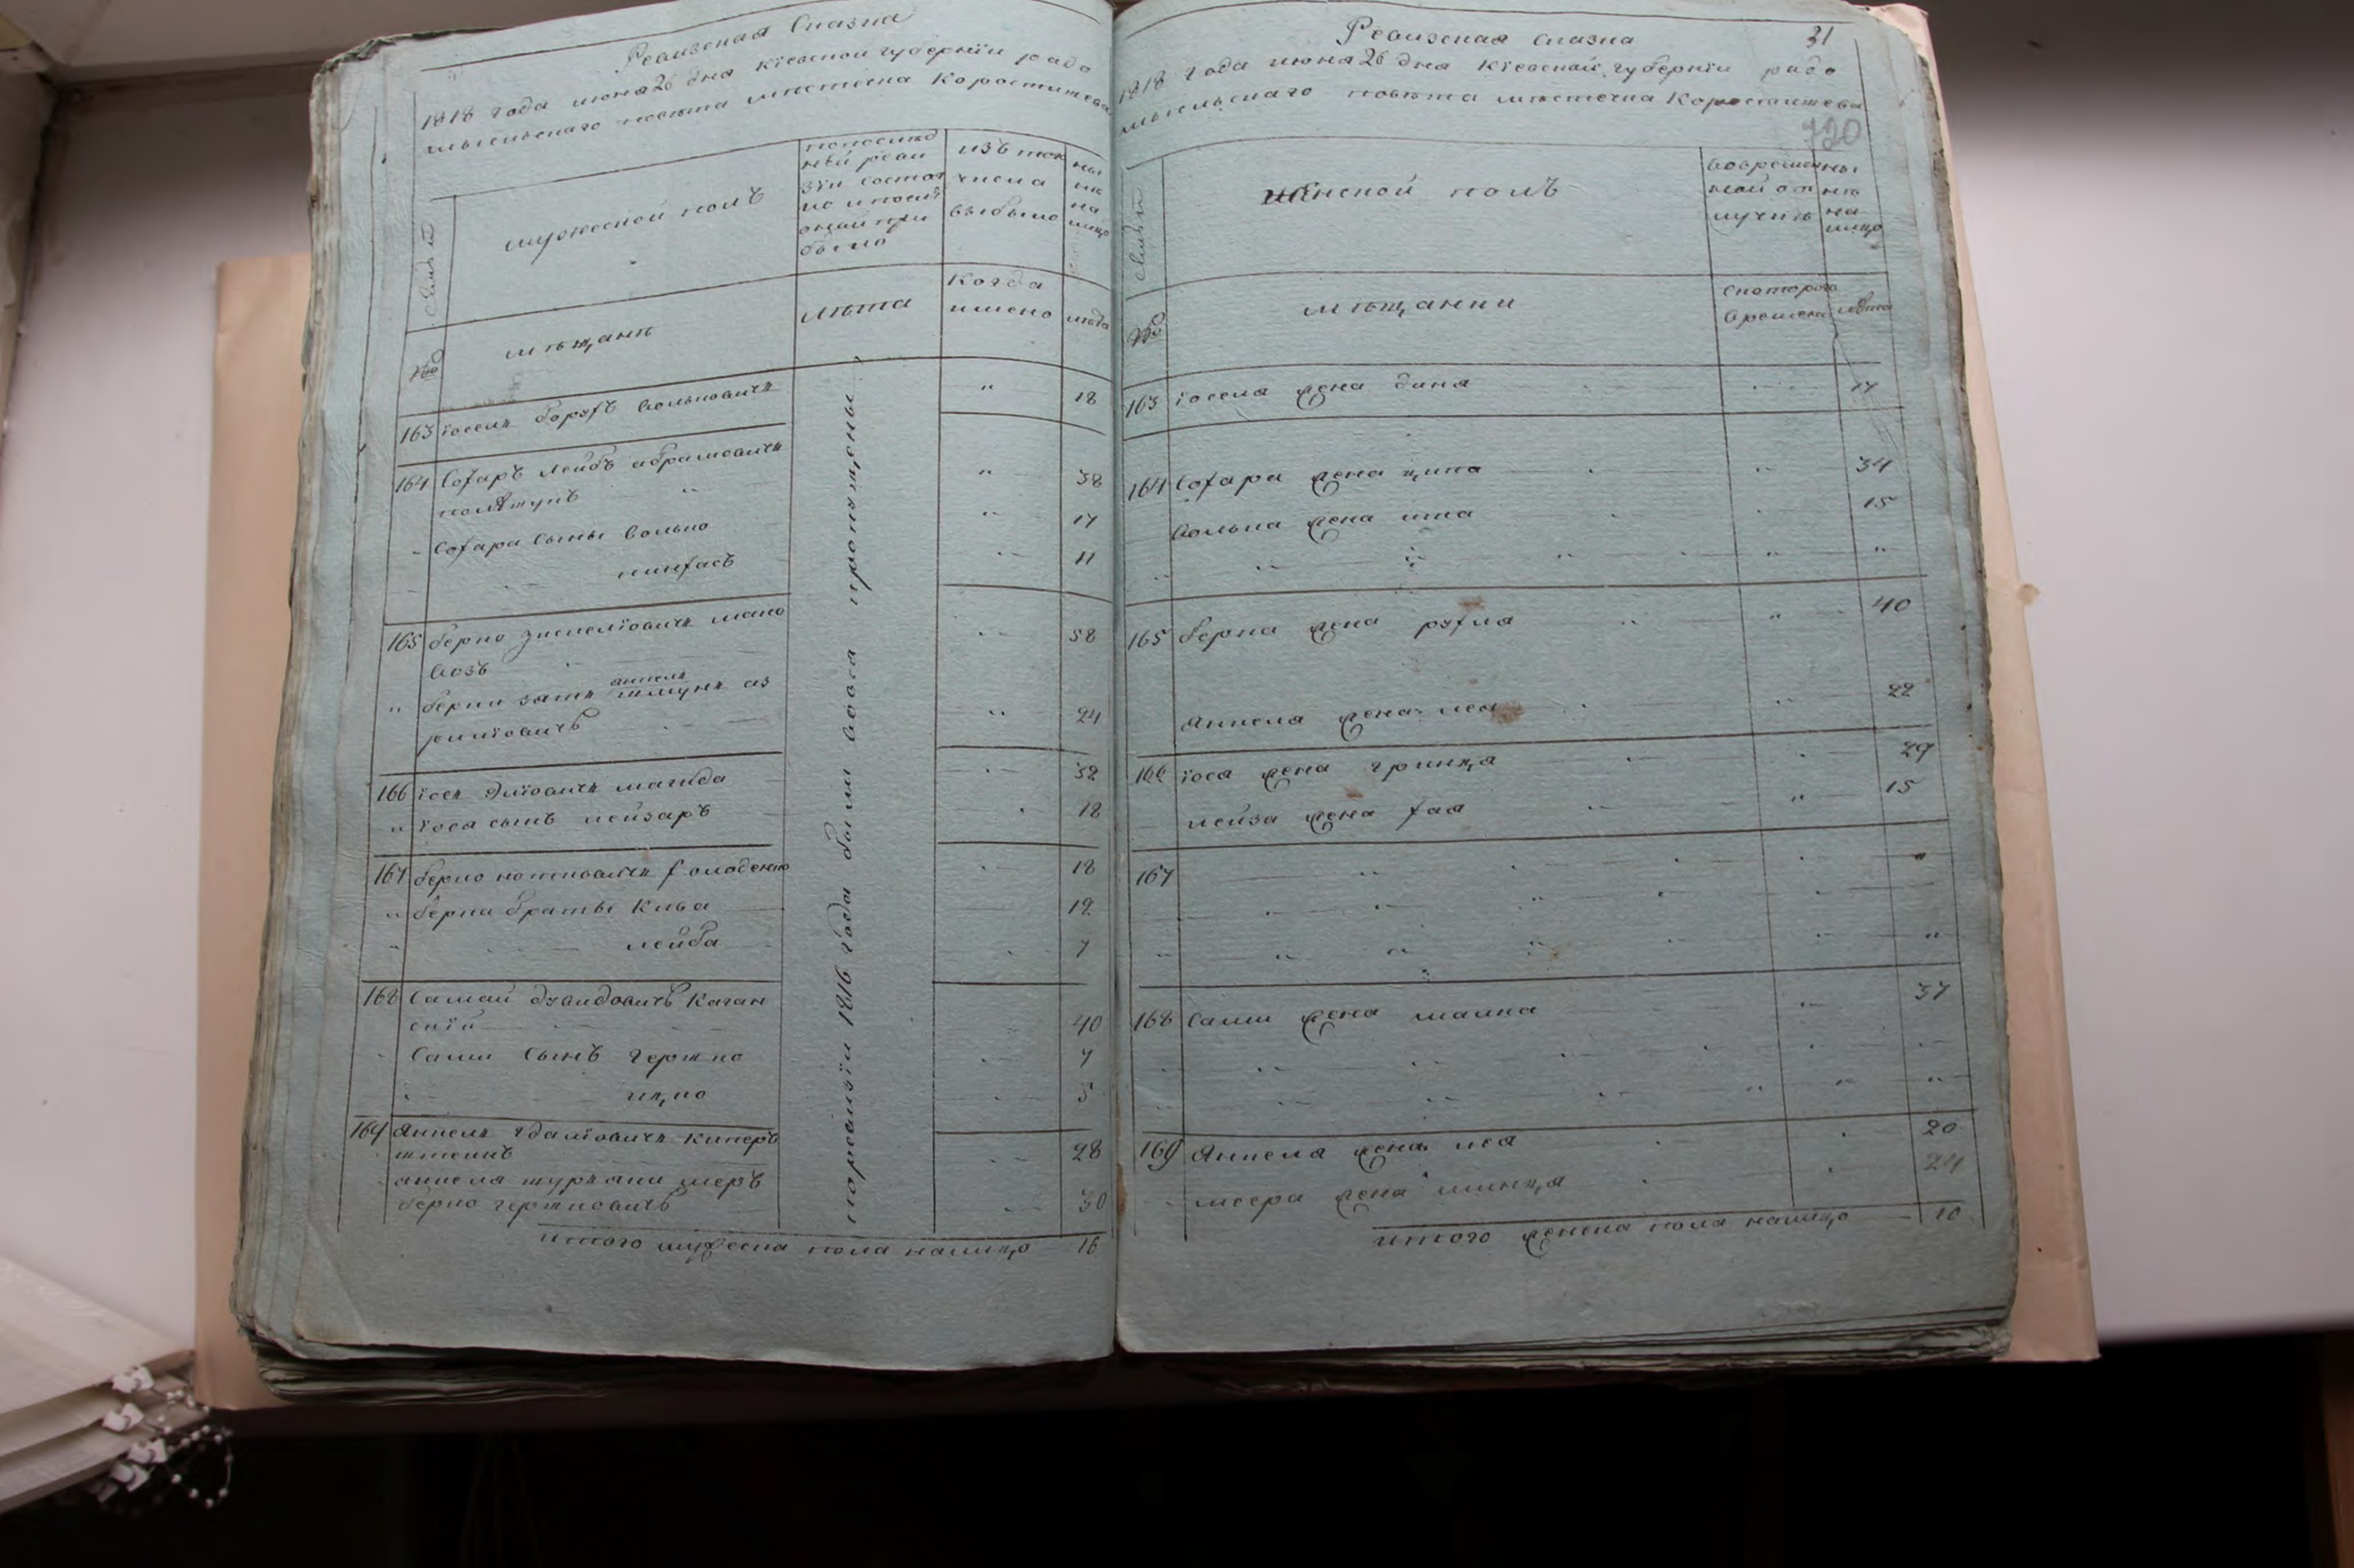 Ревизская Сказка
1818 года июня 26 дня Кіевской губерніи радо
мысльскаго повѣта мѣстечка Коростишева
мужеской полъ
попослѣд
ней реви
зіи состоя
ло и послѣ
оной при
было
изъ того
числа
выбыло
ны
нѣ
на
лицо
№
мѣщане
лѣта
Когда
имено
лѣта
163 іосель борухъ волковичь " 18
164 Сохаръ лейбъ абрамовичь 38
полѣтунъ "
Сохара сыны волько " 17
пинхасъ 11
165 берко зиселіовичь мано 58
возъ
" берки зять шмуль аз
анкель
риліовичъ " 24
166 іось эліовичь магида 32
" іося сынъ лейзаръ 18
167 берконоткович холоденко 18
" берки братья Кива 12
" лейба 7
168 Самай дувидовичъ Каган
скій 40
Сами Сынъ гершко 7
ицко 5
169 Янкель гдаліовичь Киперъ
штеинъ 28
анкеля шурканы меръ
берко гершковичъ 30
поревизіи 1816 года были вовса пропущены
итого мужеска пола налицо 16
Ревизская Сказка 31
1818 года июня 26 дня Кіевской губерніи радо
мысльскаго повѣта мѣстечка Коростишева
720
женской полъ
вовремен
ной от
лучкѣ
ны
нѣ
на
лицо
№
мѣщанки
Скоторого
времени
лѣта
163 іоселя жена дина 17
164 Сохара жена ципа 34
волька жена ита 15
165 берка жена рухля " 40
Анкеля жена лея 22
166 іося жена гринця 29
лейза жена хая " 15
167
168 Сами жена малка 37
169 Янкеля жена лея 20
меера жена минця 24
итого женска пола налицо 10